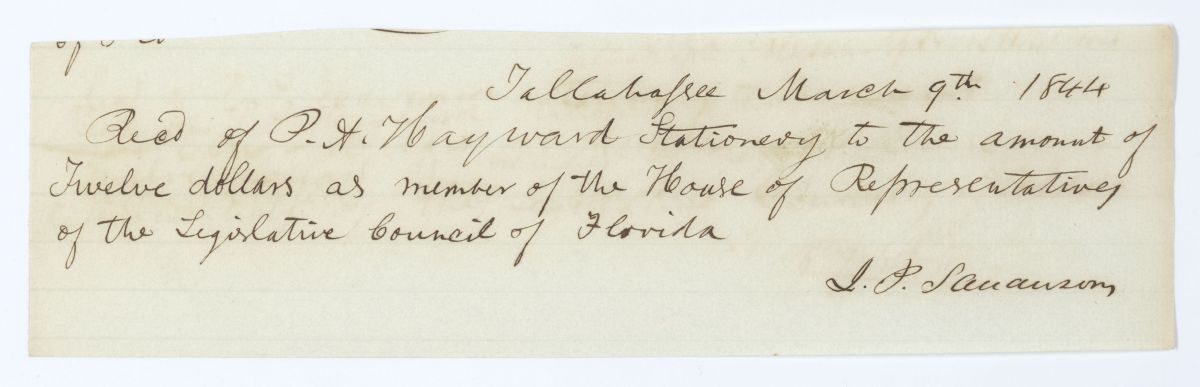 of
Tallahassee March 9th 1844
Recd of P. A. Hayward Stationery to the amount of
Twelve dollars as member of the House of Representatives
of the Legislative Council of Florida
P.